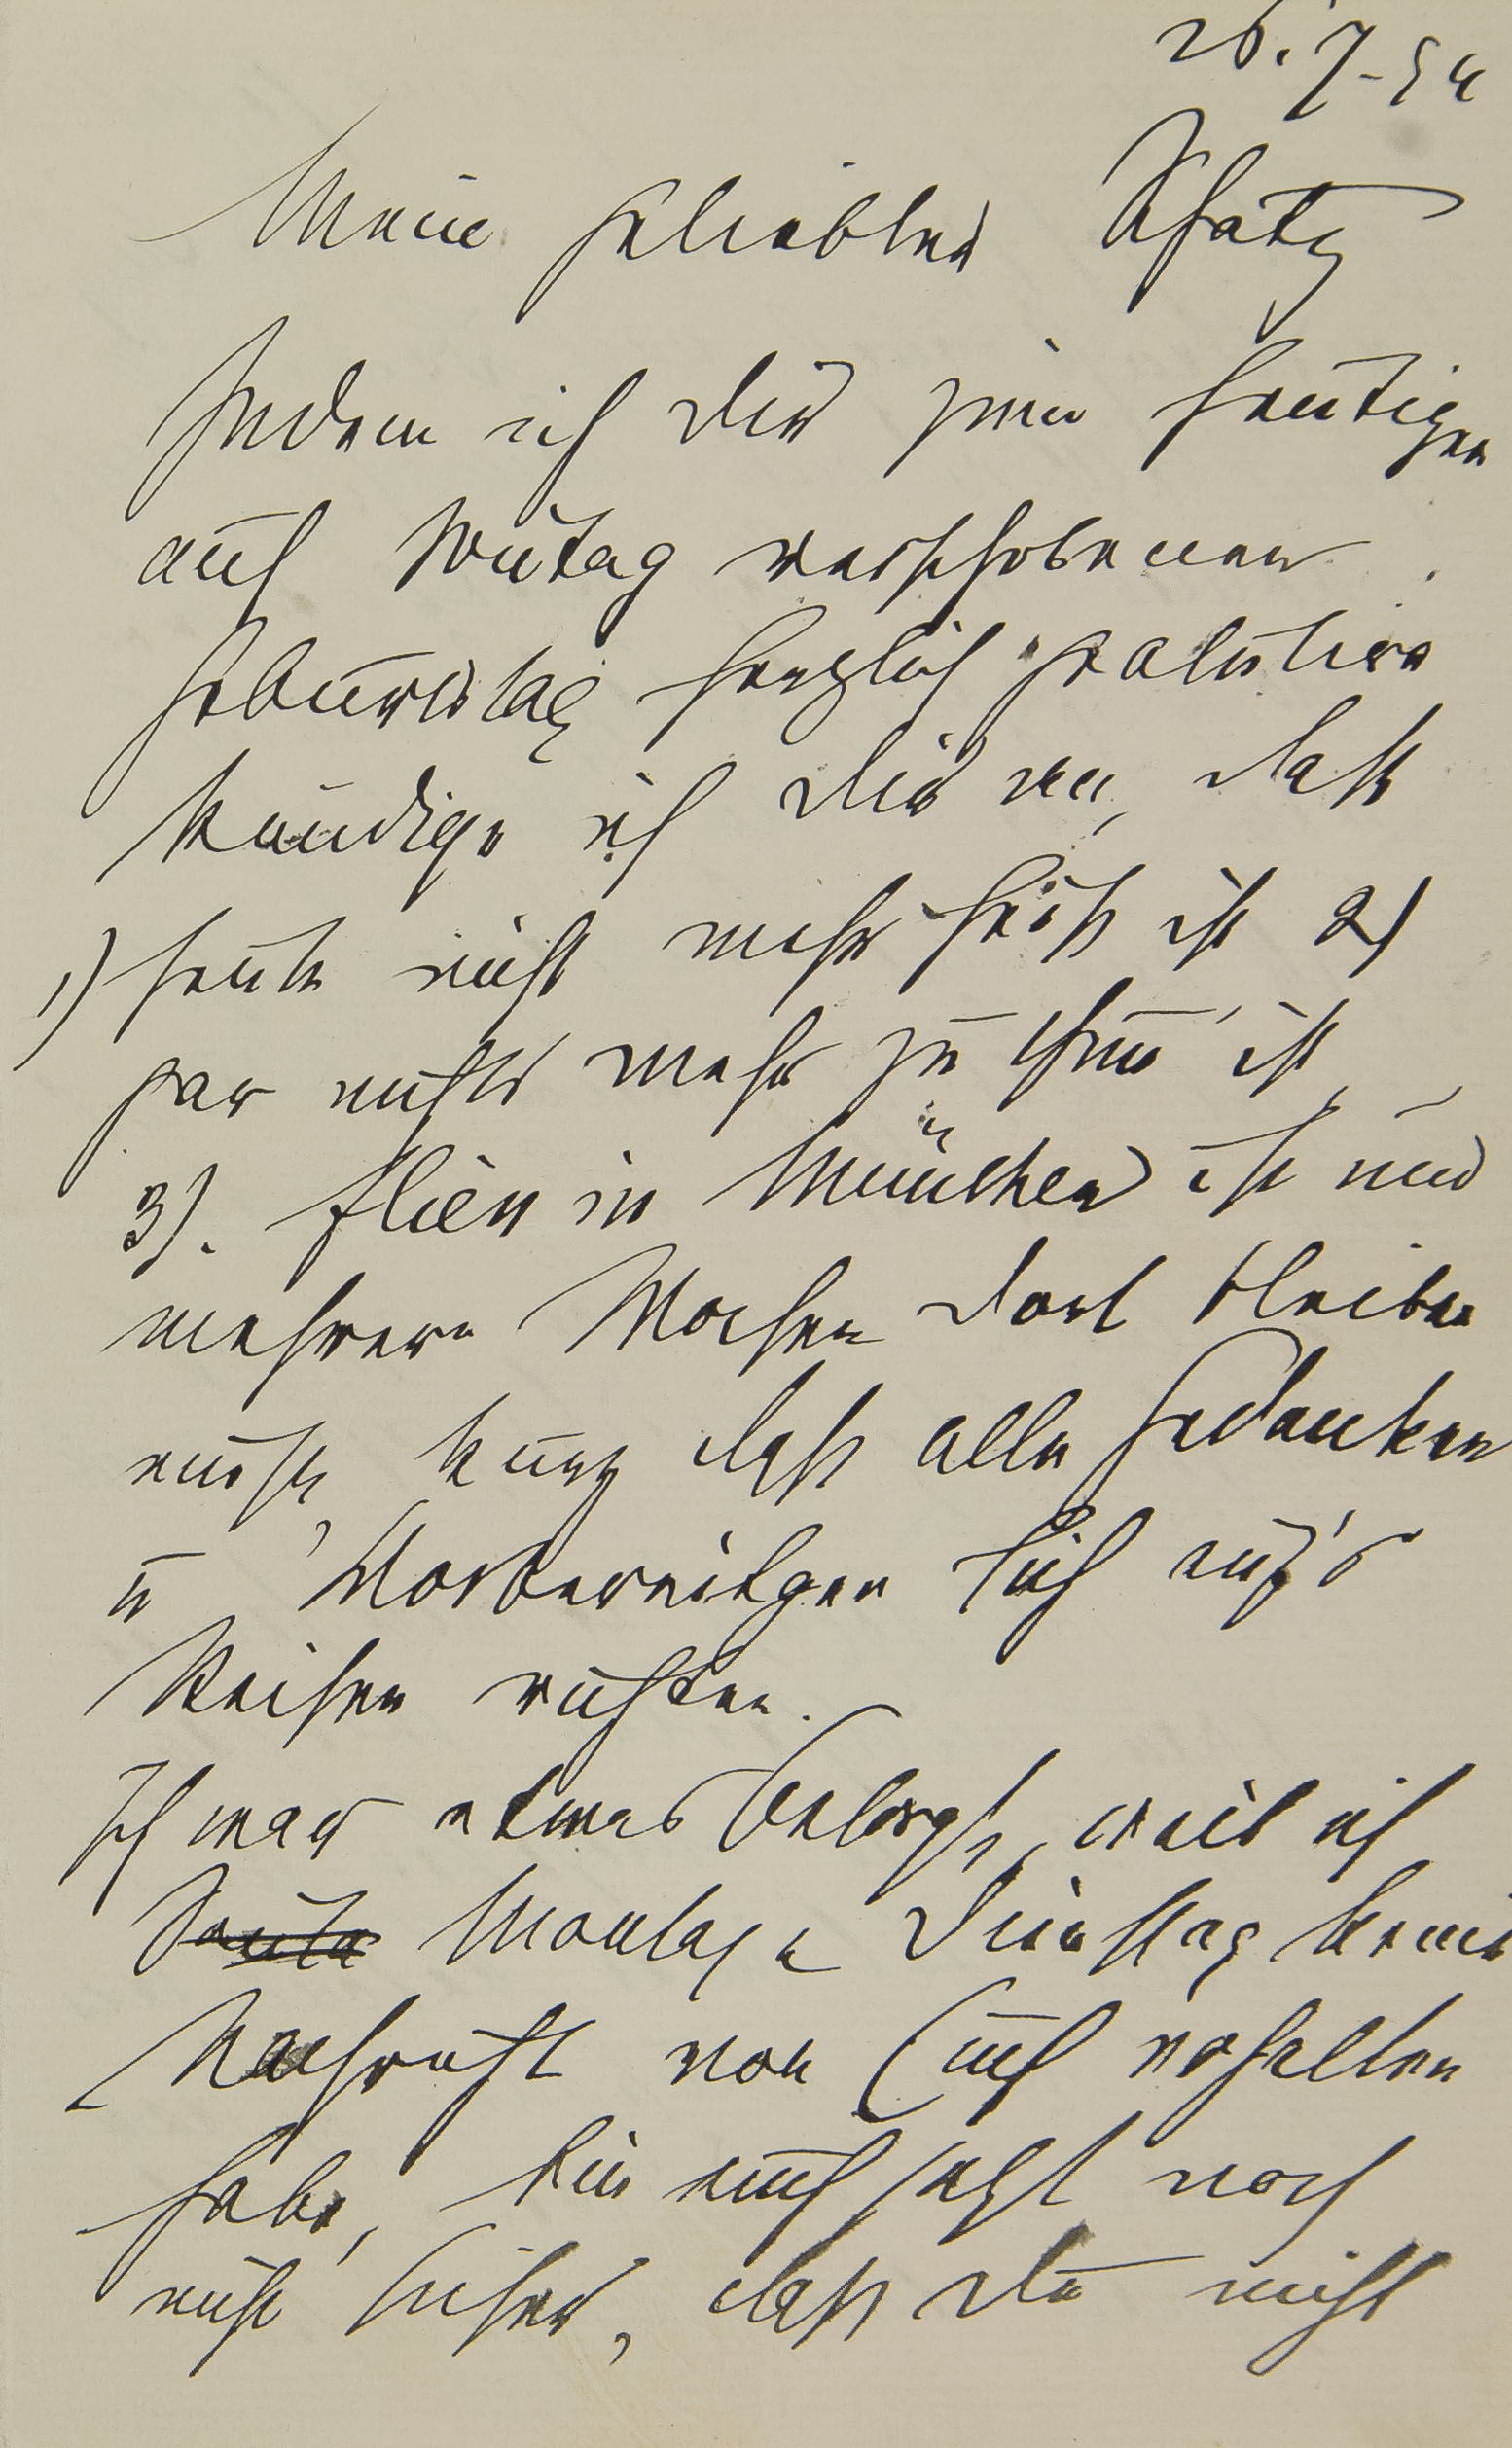 26. 7. 94
Mein geliebter Schatz
Indem ich Dir zum heutigen
auf Sontag verschobenen
Geburtstag herzlich gratulire
kündige ich Dir an, dass
1) heute nicht mehr heiß ist 2)
gar nichts mehr zu thun ist,
3). Fließ in München ist und
mehrere Wochen dort bleiben
muß, kurz daß alle Gedanken
u Vorbereitgen sich auf's
Reisen richten.
Ich war etwas besorgt, weil ich
Montag u Dienstag keine
Nachricht von Euch erhalten
habe, bin auch jetzt noch
nicht sicher, daß Du nicht